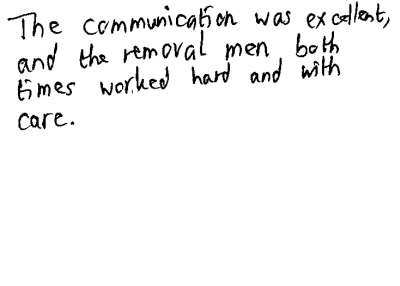 The communication was excellent,
and the removal men both
times worked hard and with
care.